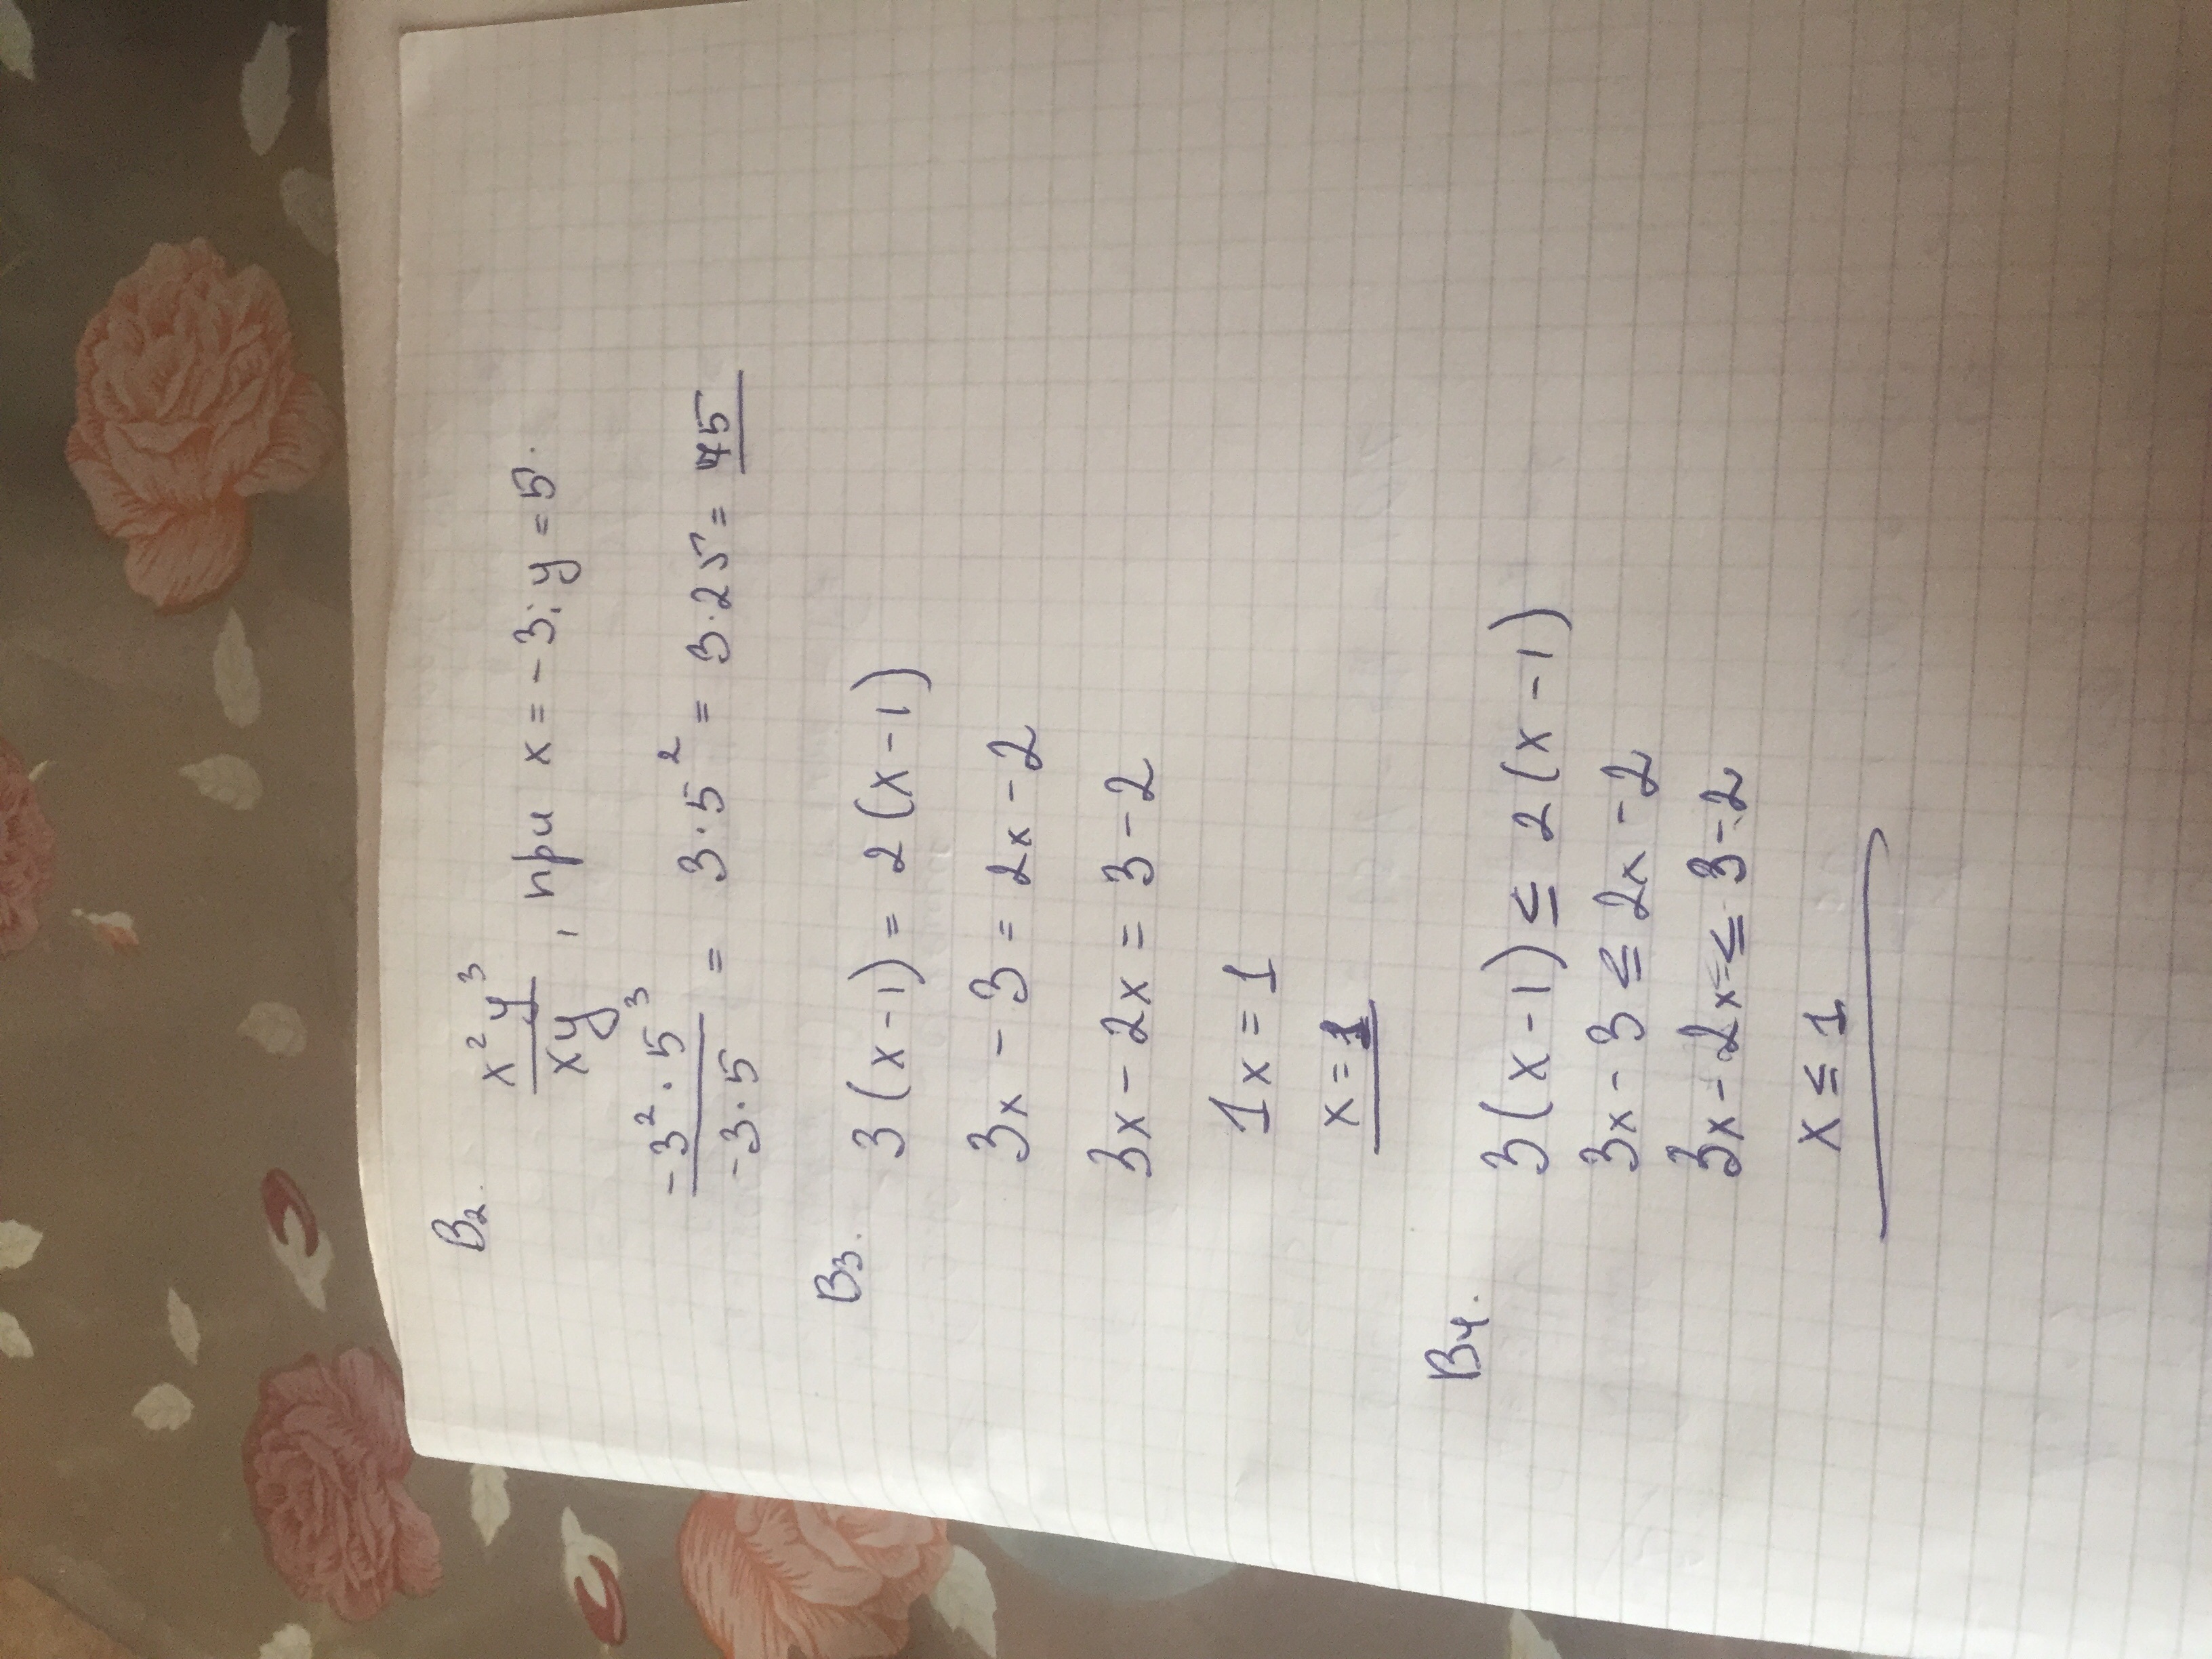 B₂.
x²y³/xy, при x = -3; y = 5.
-3² · 5³/-3 · 5 = 3 · 5² = 3 · 25 = 75
B₃.
3(x - 1) = 2(x - 1)
3x - 3 = 2x - 2
3x - 2x = 3 - 2
1x = 1
x = 1
B₄.
3(x - 1) ≤ 2(x - 1)
3x - 3 ≤ 2x - 2
3x - 2x ≤ 3 - 2
x ≤ 1